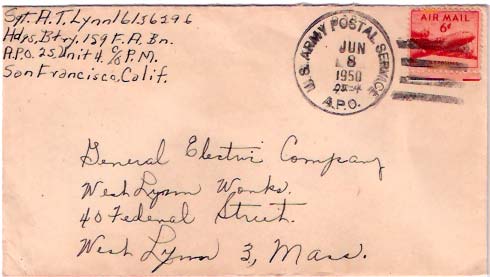 Sgt. A.T. Lynn 16136296
Hdqs. Btry. 159 F.A. Bn.
A.P.O. 25, Unit 4 c/o P.M.
San Francisco, Calif.
U.S. ARMY POSTAL SERVICE
JUN
8
1950
A.P.O.
AIR MAIL
6¢
General Electric Company
West Lynn Works.
40 Federal Street.
West Lynn 3, Mass.